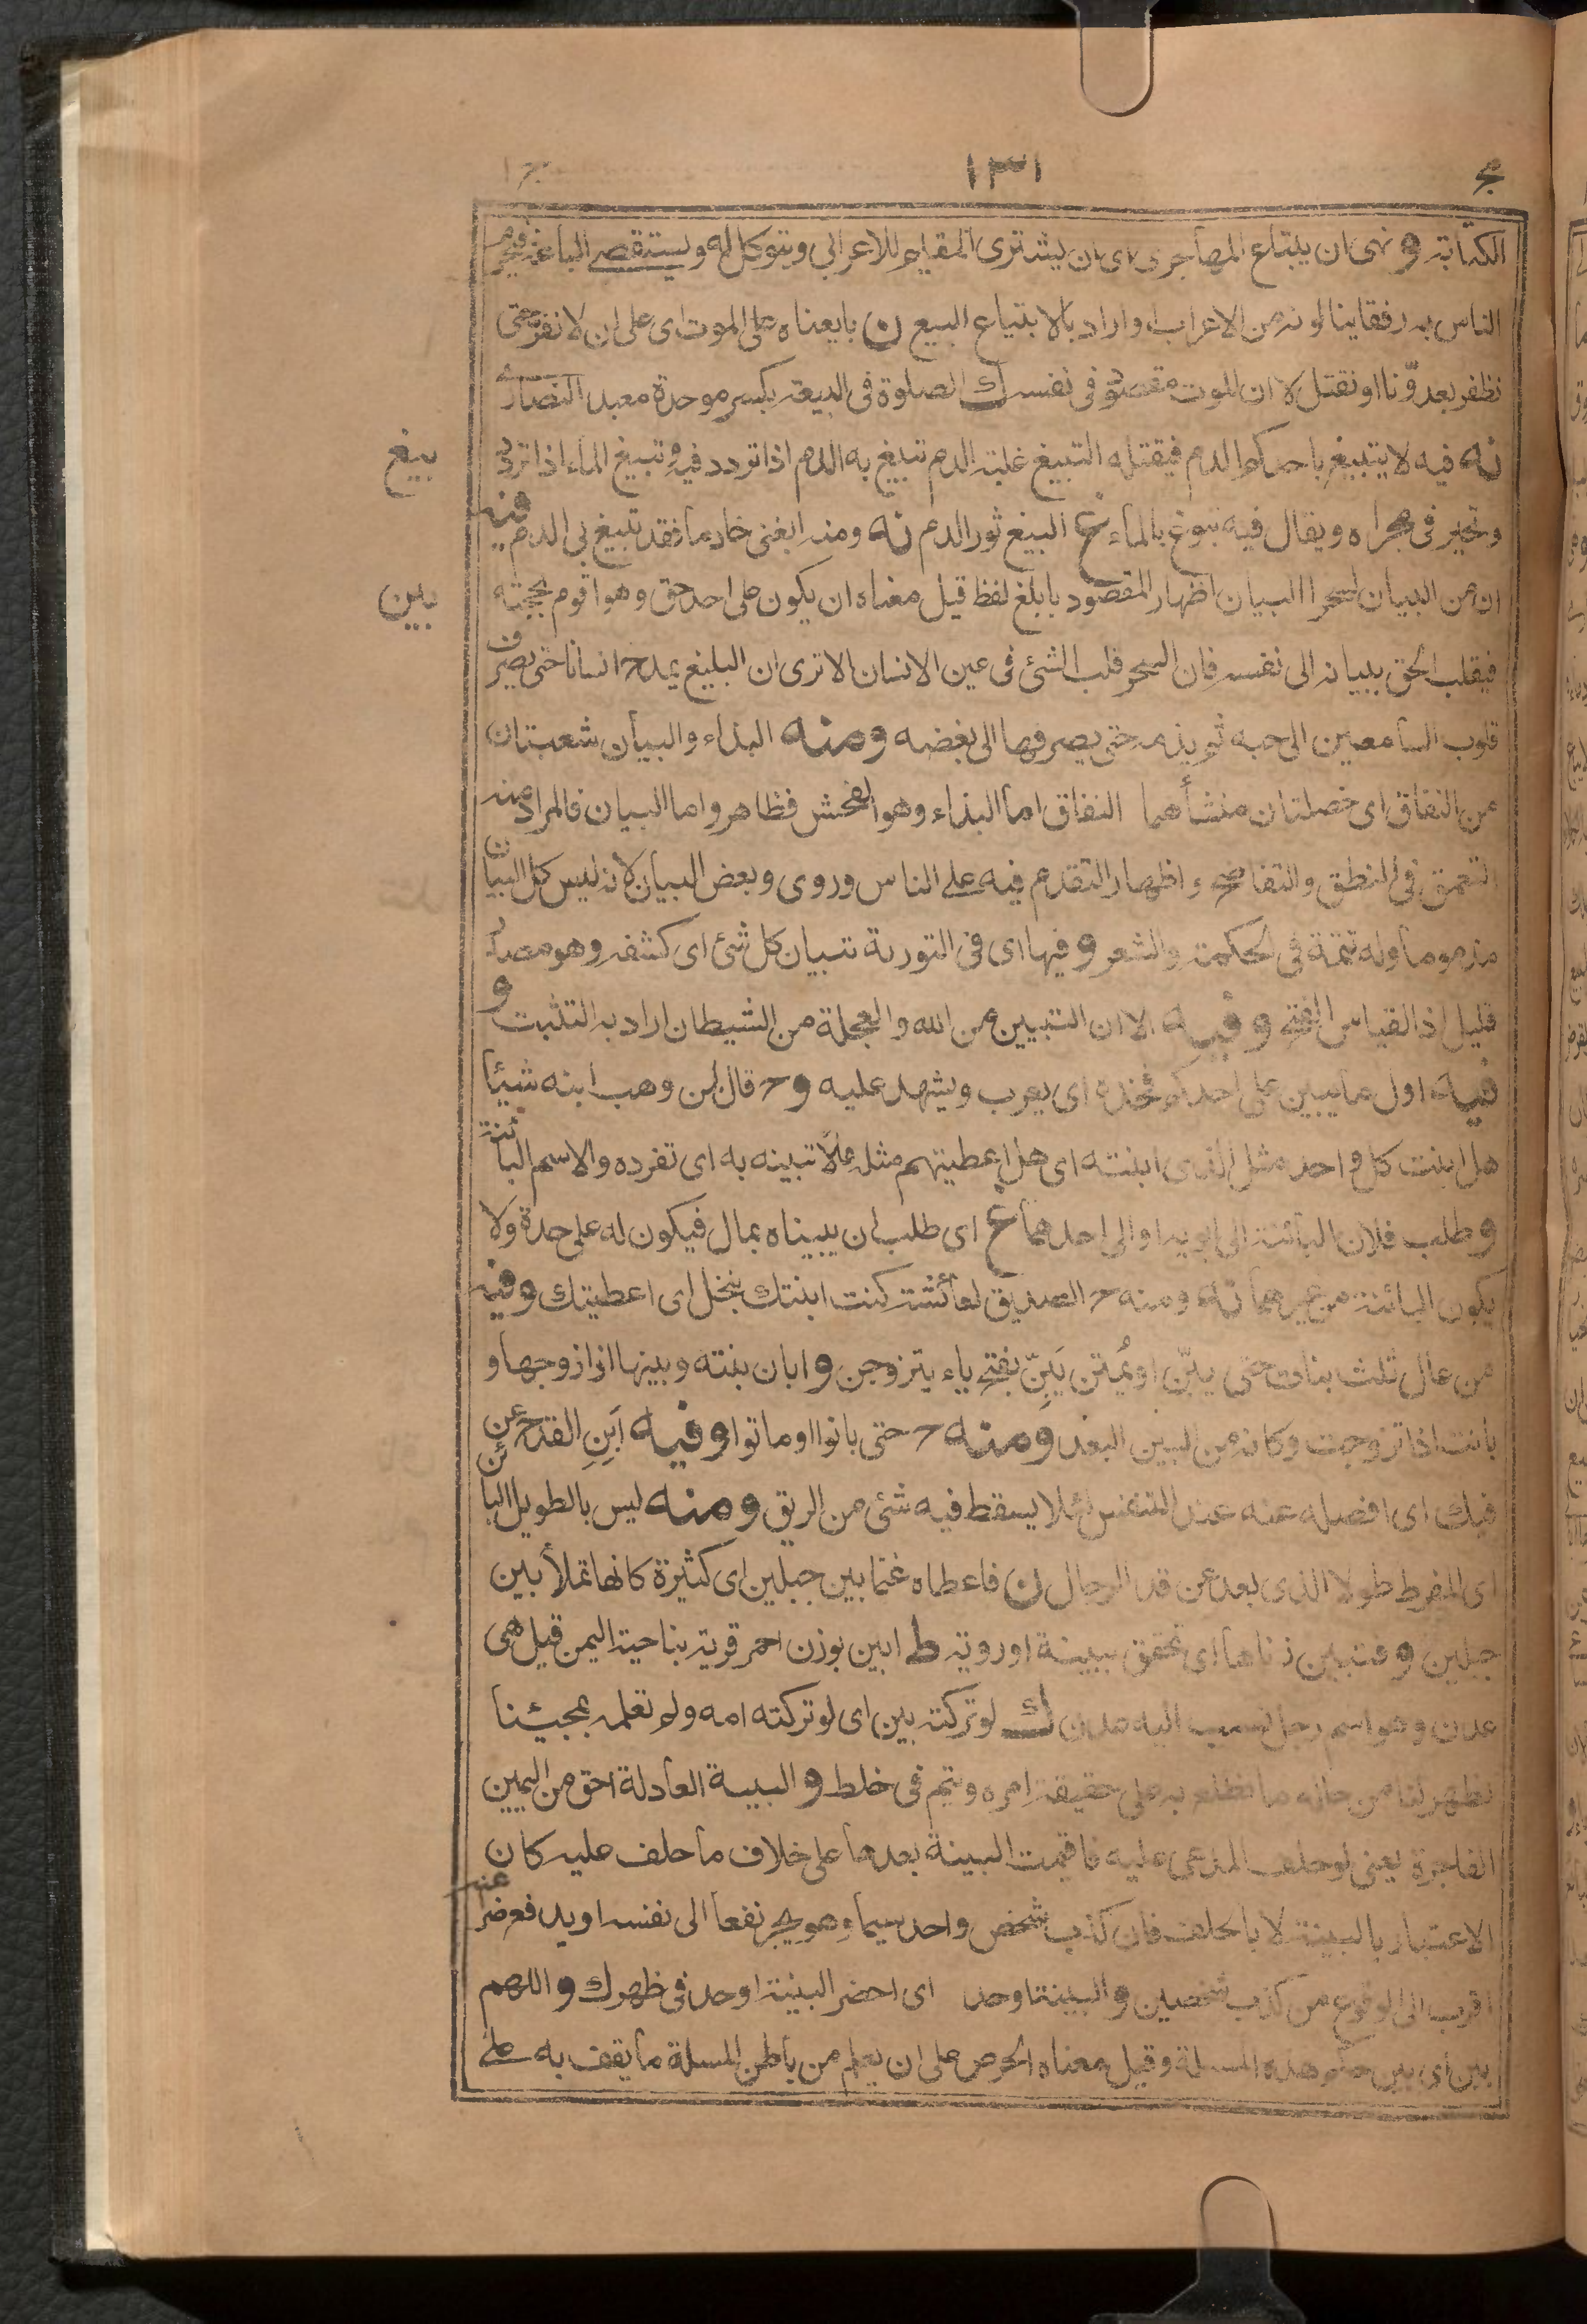 ١٣١
الكتابة و نهى ان يبتاع المهاجرى اى ان يشترى المقيم للاعرابى ويتوكل له ويستقصى
الناس به رفقا ينالونه من الاعراب او اراد بالابتياع البيع ن بايعناه على الموت اى على ان لا نفر حتى
نظفر بعدونا او نقتل لا ان الموت مقصود فى نفسه ك الصلوة فى البيعة بكسر موحدة معبد النصارى
بيغ
نه فيه لا يتبيغ باحدكم الدم فيقتله التبيغ غلبة الدم تبيغ به الدم اذا تردد فيه و تبيغ الماء اذا تردد
وتحير فى مجراه ويقال فيه تبوغ بالماء غ البيغ ثور الدم نه ومنه ابغنى خادما فقد تبيغ بى الدم فيه
بين
ان من البيان لسحرا البيان اظهار المقصود بابلغ لفظ قيل معناه ان يكون على احد حق وهو اقوم بحجته
فيقلب الحق ببيانه الى نفسه فان السحر قلب الشئ فى عين الانسان الا ترى ان البليغ يمدح انسانا حتى يصرف
قلوب السامعين الى حبه ثم يذمه حتى يصرفها الى بغضه ومنه البذاء والبيان شعبتان
من النفاق اى خصلتان منشأهما النفاق اما البذاء وهو الفحش فظاهر واما البيان فالمراد منه
التعمق فى النطق والتفاصح و اظهار التقدم فيه على الناس وروى وبعض البيان لانه ليس كل البيان
مذموما وله تتمة فى الحكمة والشعر و فيها اى فى التورية تبيان كل شئ اى كشفه وهو مصدر
قليل اذ القياس الفتح وفيه الا ان التبيين من الله والعجلة من الشيطان اراد به التثبت و
فيه اول ما يبين على احدكم فخذه اى يعرب ويشهد عليه و ح قال لمن وهب ابنه شيئا
هل ابنت كل واحد مثل الذى ابنته اى هل اعطيتهم مثله مالا تبينه به اى تفرده والاسم البائنة
و طلب فلان البائنة الى ابويه او الى احدهما غ اى طلب ان يبيناه بمال فيكون له على حدة ولا
يكون البائنة من غيرهما نه ومنه ح الصديق لعائشة كنت ابنتك بنحل اى اعطيتك وفيه
من عال ثلث بنات حتى يبن او يمتن يبن بفتح ياء يتزوجن و ابان بنته وبينها اذا زوجها و
بانت اذا تزوجت وكانه من البين البعد ومنه ح حتى بانوا او ماتوا وفيه ابن القدح عن
فيك اى افصله عنه عند التنفس لئلا يسقط فيه شئ من الريق ومنه ليس بالطويل البائن
اى المفرط طولا الذى بعد عن قد الرجال ن فاعطاه غنما بين جبلين اى كثيرة كانها تملأ بين
جبلين و فتبين زناها اى تحقق ببينة او روية ط ابين بوزن احمر قرية بناحية اليمن قيل هى
عدن وهو اسم رجل نسب اليه عدن ك لو تركته بين اى لو تركته امه ولم تعلمه بمجيئنا
لظهر لنا من حاله ما نطلع به على حقيقة امره ويتم فى خلط و البينة العادلة احق من اليمين
الفاجرة يعنى لو حلف المدعى عليه فاقيمت البينة بعدها على خلاف ما حلف عليه كان
الاعتبار بالبينة لا بالحلف فان كذب شخص واحد سيما وهو يجر نفعا الى نفسه او يدفع ضرا عنه
اقرب الى الوقوع من كذب شخصين و البينة او حد اى احضر البينة او حد فى ظهرك و اللهم
بين اى بين حكم هذه المسئلة وقيل معناه الحرص على ان يعلم من باطن المسلة ما يقف به على